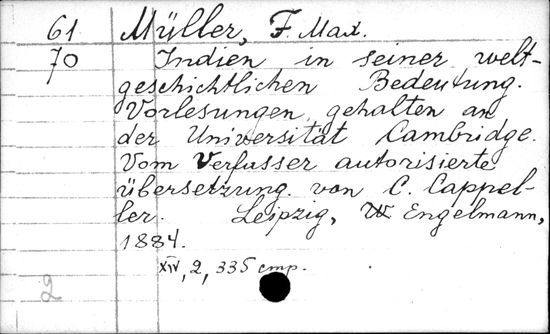 61 Müller, F. Max.
70 Indien in seiner welt-
geschichtlichen Bedeutung.
Vorlesungen, gehalten an
der Universität Cambridge.
Vom Verfasser autorisierte
übersetzung von C. Cappel-
ler. Leipzig, W. Engelmann,
1884.
XIV, 2, 335 стр.
2